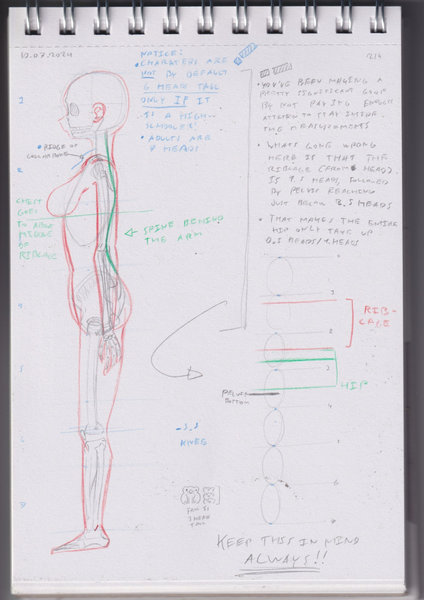 10.07.2024
NOTICE:
• CHARACTERS ARE
NOT BY DEFAULT
6 HEADS TALL
ONLY IF IT
IS A HIGH-
SCHOOLER
• ADULTS ARE
8 HEADS
• RIDGE OF
CHEST
GOES
TO ABOVE
MIDDLE
OF
RIBCAGE
SPINE BEHIND
THE ARM
• YOU'VE BEEN MAKING A
PRETTY SIGNIFICANT GOOF
BY NOT PAYING ENOUGH
ATTENTION TO STAY INSIDE
THE MEASUREMENTS
• WHATS GONE WRONG
HERE IS THAT THE
RIBCAGE (FROM HEAD)
IS 1.5 HEADS, FOLLOWED
BY PELVIS REACHING
JUST BELOW 3.5 HEADS
• THAT MAKES THE ENTIRE
HIP ONLY TAKE UP
RIB-
CAGE
HIP
PELVIS
BOTTOM
KNEES
KEEP THIS IN MIND
ALWAYS!!